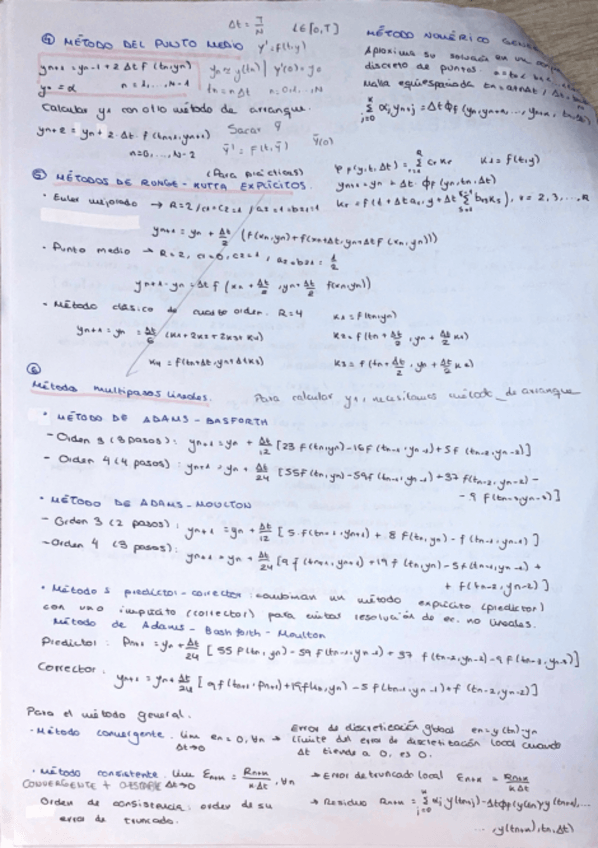 Δt = T/N    t∈[0,T]
④ MÉTODO DEL PUNTO MEDIO   y' = f(t,y)
yn+1 = yn-1 + 2Δt f(tn,yn)    yn ≈ y(tn) | y'(0) = y0
y0 = α    n = 1,...,N-1    tn = nΔt    n: 0,1,...,N
Calcular y1 con otro método de arranque.
yn+2 = yn + 2·Δt·f(tn+1,yn+1)    Sacar ȳ
n=0,...,N-2    ȳ' = f(t,ȳ)    ȳ(0)
MÉTODO NUMÉRICO
Aproxima su solución en un
discreto de puntos.
Malla equiespaciada tn = a+nΔt / Δt =
Σ αj yn+j = Δt ϕf (yn, yn+1, ..., yn+k, tn, Δt)
⑤ MÉTODOS DE RUNGE-KUTTA EXPLÍCITOS. (Para prácticas)
ϕf(y,t,Δt) = Σ cr kr    k1 = f(t,y)
yn+1 = yn + Δt·ϕf (yn,tn,Δt)
kr = f(t+Δt ar, y+Δt Σ brs ks), r = 2,3,...,R
• Euler mejorado → R=2, c1=c2=1/2, a2=b21=1
yn+1 = yn + Δt/2 (f(xn,yn) + f(xn+Δt, yn+Δt f(xn,yn)))
• Punto medio → R=2, c1=0, c2=1, a2=b21=1/2
yn+1 - yn = Δt f (xn + Δt/2, yn + Δt/2 f(xn,yn))
• Método clásico de cuarto orden. R=4    k1 = f(tn,yn)
yn+1 = yn = Δt/6 (k1+2k2+2k3+k4)    k2 = f(tn + Δt/2, yn + Δt/2 k1)
k4 = f(tn+Δt, yn+Δtk3)    k3 = f(tn + Δt/2, yn + Δt/2 k2)
⑥
Método multipasos lineales.    Para calcular y1, necesitamos método de arranque
• MÉTODO DE ADAMS-BASFORTH
- Orden 3 (3 pasos): yn+1 = yn + Δt/12 [23 f(tn,yn) - 16 f(tn-1,yn-1) + 5 f(tn-2,yn-2)]
- Orden 4 (4 pasos): yn+1 = yn + Δt/24 [55 f(tn,yn) - 59 f(tn-1,yn-1) + 37 f(tn-2,yn-2) -
- 9 f(tn-3,yn-3)]
• MÉTODO DE ADAMS-MOULTON
- Orden 3 (2 pasos): yn+1 = yn + Δt/12 [5 f(tn+1,yn+1) + 8 f(tn,yn) - f(tn-1,yn-1)]
- Orden 4 (3 pasos): yn+1 = yn + Δt/24 [9 f(tn+1,yn+1) + 19 f(tn,yn) - 5 f(tn-1,yn-1) +
+ f(tn-2,yn-2)]
• Métodos predictor-corrector: combinan un método explícito (predictor)
con uno implícito (corrector) para evitar resolución de ec. no lineales.
Método de Adams-Bashforth-Moulton
Predictor: Pn+1 = yn + Δt/24 [55 f(tn,yn) - 59 f(tn-1,yn-1) + 37 f(tn-2,yn-2) - 9 f(tn-3,yn-3)]
Corrector: yn+1 = yn + Δt/24 [9 f(tn+1,Pn+1) + 19 f(tn,yn) - 5 f(tn-1,yn-1) + f(tn-2,yn-2)]
Para el método general.
• Método convergente. lim en = 0, ∀n → Error de discretización global en = y(tn) - yn
Δt→0    límite del error de discretización local cuando
Δt tiende a 0, es 0.
• Método consistente. lim En+k = Rn+k/kΔt, ∀n → Error de truncado local En+k = Rn+k/kΔt
CONVERGENTE + Δt→0
Orden de consistencia: orden de su → Residuo Rn+k = Σ αj y(tn+j) - Δtϕf(y(tn), y(tn+1), ...
error de truncado.    ..., y(tn+k), tn, Δt)